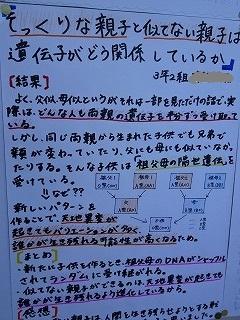 そっくりな親子と似てない親子は
遺伝子がどう関係しているか
3年2組
【結果】
よく、父似母似というがそれは一部を見ただけの話で、実
際は、どんな人も両親の遺伝子を半分ずつ受け取って
いる。
しかし、同じ両親から生まれた子供でも兄弟で
顔が変わっていたり、父にも母にも似ていなか
ったりする。そんな子供は「祖父母の隔世遺伝」を
受けている。
!!なぜ??
新しいパターンを
作ることで、天地異変が
起きてもバリエーションが多く、
誰かが生き残れる可能性が高くなるため。
【まとめ】
・新たに子供を作るとき、祖父母のDNAがシャッフル
されてランダムに受け継がれる。
・似てない親子ができるのは、天地異変が起きても
誰かが生き残れるよう進化しているから。
【感想】
人間を生き残らせようとする